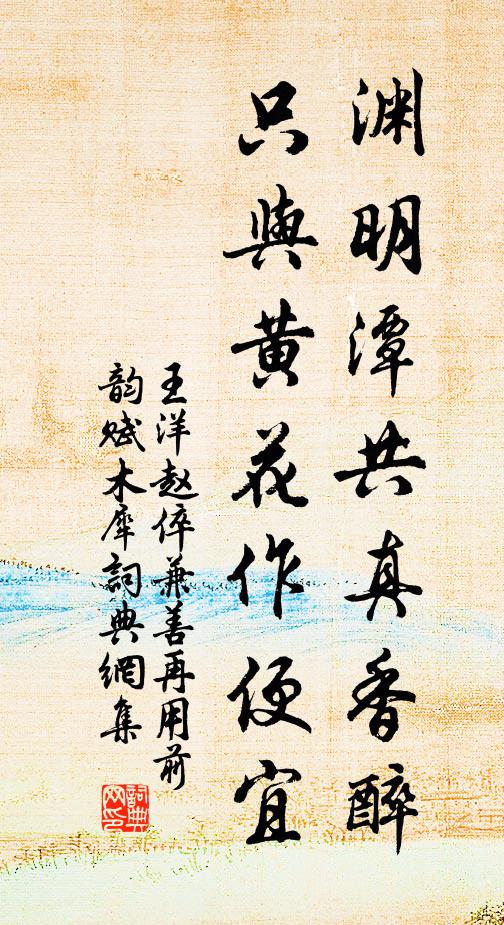 渊明潭共真香醉
只與黄花作便宜
王洋赵倅兼善再用前
韵赋木犀詞典網集
詞典
网印